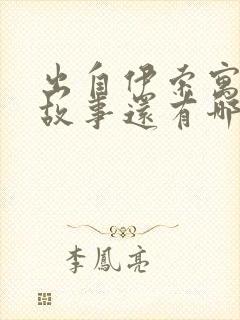 出自伊索寓
故事還有哪
李鳳亮